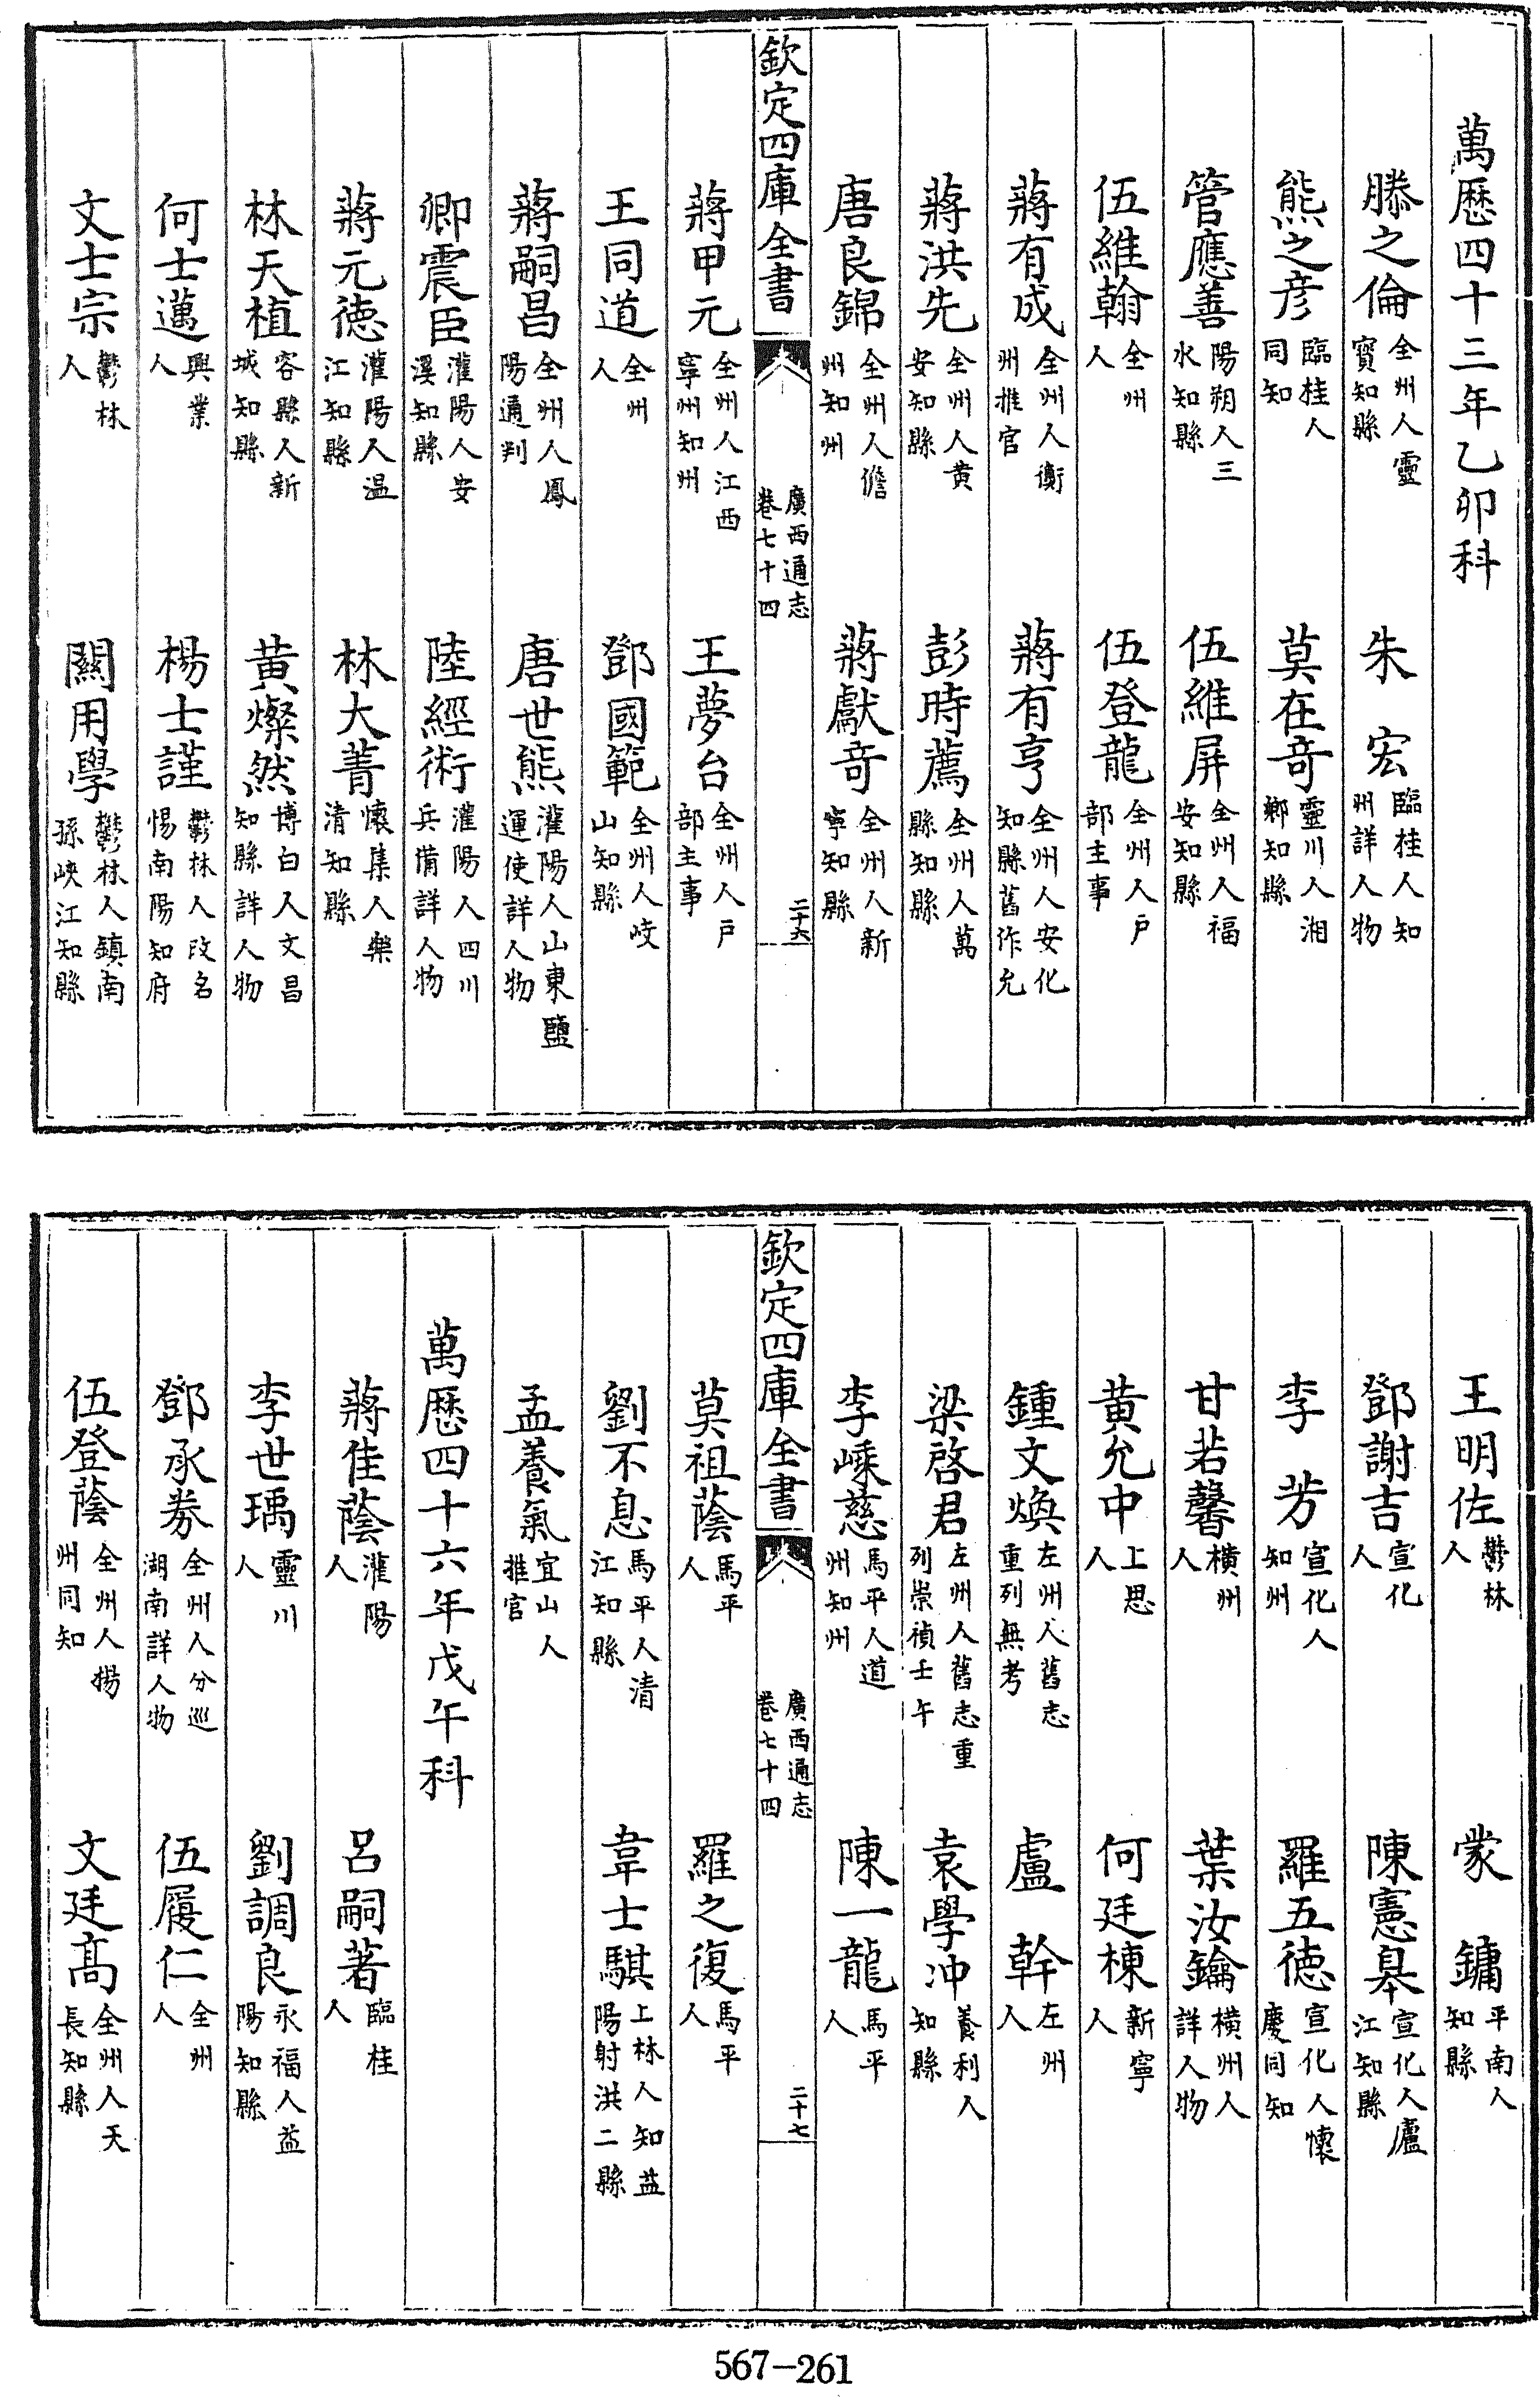 萬歷四十三年乙卯科
滕之倫 全州人靈寶知縣 朱宏 臨桂人知州詳人物
熊之彦 臨桂人同知 莫在奇 靈川人湘鄉知縣
管應善 陽朔人三水知縣 伍維屏 全州人福安知縣
伍維翰 全州人 伍登龍 全州人户部主事
蔣有成 全州人衡州推官 蔣有亨 全州人安化知縣舊作允
蔣洪先 全州人黄安知縣 彭時薦 全州人萬縣知縣
唐良錦 全州人儋州知州 蔣獻奇 全州人新寧知縣
欽定四庫全書 廣西通志卷七十四 二十六
蔣甲元 全州人江西寧州知州 王夢台 全州人户部主事
王同道 全州人 鄧國範 全州人岐山知縣
蔣嗣昌 全州人鳳陽通判 唐世熊 灌陽人山東鹽運使詳人物
卿震臣 灌陽人安溪知縣 陸經術 灌陽人四川兵備詳人物
蔣元德 灌陽人温江知縣 林大菁 懷集人樂清知縣
林天植 容縣人新城知縣 黄燦然 博白人文昌知縣詳人物
何士邁 興業人 楊士謹 鬱林人改名惕南陽知府
文士宗 鬱林人 闗用學 鬱林人鎮南孫峽江知縣
王明佐 鬱林人 蒙鏞 平南人知縣
鄧謝吉 宣化人 陳憲臯 宣化人廬江知縣
李芳 宣化人知州 羅五德 宣化人懷慶同知
甘若馨 横州人 葉汝鑰 横州人詳人物
黄允中 上思人 何廷棟 新寧人
鍾文煥 左州人舊志重列無考 盧幹 左州人
梁啓君 左州人舊志重列崇禎壬午 袁學冲 養利人知縣
李嵊慈 馬平人道州知州 陳一龍 馬平人
欽定四庫全書 廣西通志卷七十四 二十七
莫祖蔭 馬平人 羅之復 馬平人
劉不息 馬平人清江知縣 韋士騏 上林人知益陽射洪二縣
孟養氣 宜山人推官
萬歷四十六年戊午科
蔣佳蔭 灌陽人 呂嗣著 臨桂人
李世瑀 靈川人 劉調良 永福人益陽知縣
鄧承券 全州人分巡湖南詳人物 伍履仁 全州人
伍登蔭 全州人揚州同知 文廷髙 全州人天長知縣
567-261